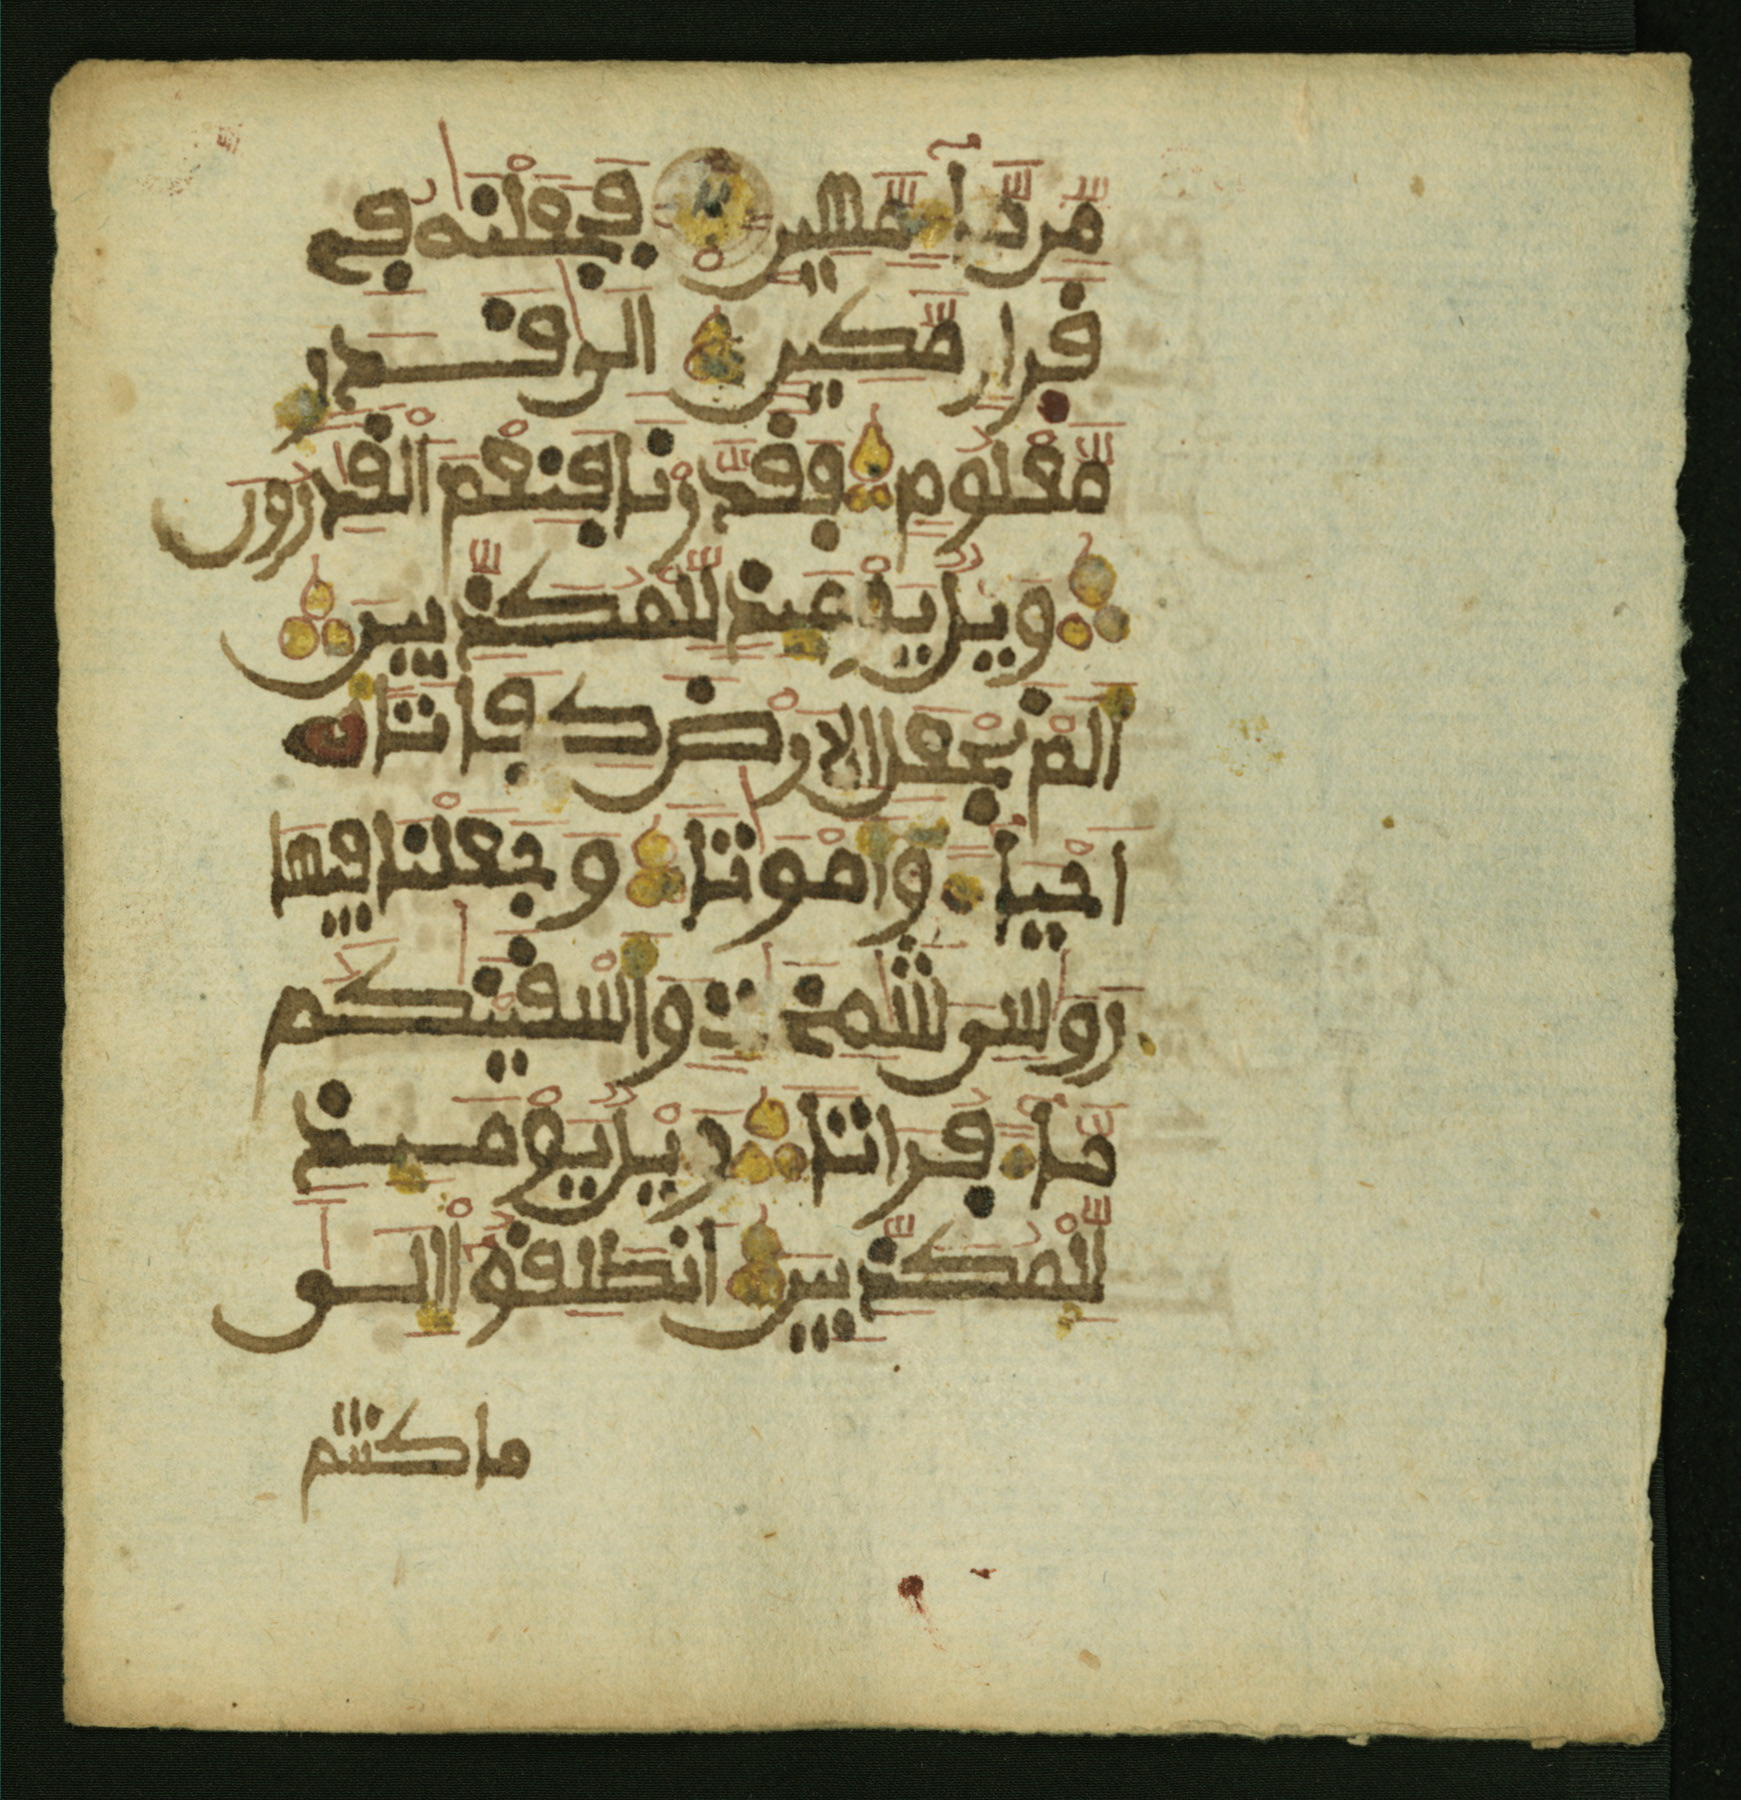 مِن مَّآءٍ مَّهِينٍ فَجَعَلْنَٰهُ فِي
قَرَارٍ مَّكِينٍ إِلَىٰ قَدَرٍ
مَّعْلُومٍ فَقَدَّرْنَا فَنِعْمَ الْقَٰدِرُونَ
وَيْلٌ يَوْمَئِذٍ لِّلْمُكَذِّبِينَ
أَلَمْ نَجْعَلِ الْأَرْضَ كِفَاتًا
أَحْيَاءً وَأَمْوَٰتًا وَجَعَلْنَا فِيهَا
رَوَٰسِيَ شَٰمِخَٰتٍ وَأَسْقَيْنَٰكُم
مَّاءً فُرَاتًا وَيْلٌ يَوْمَئِذٍ
لِّلْمُكَذِّبِينَ انطَلِقُوا إِلَىٰ
ما كنتم